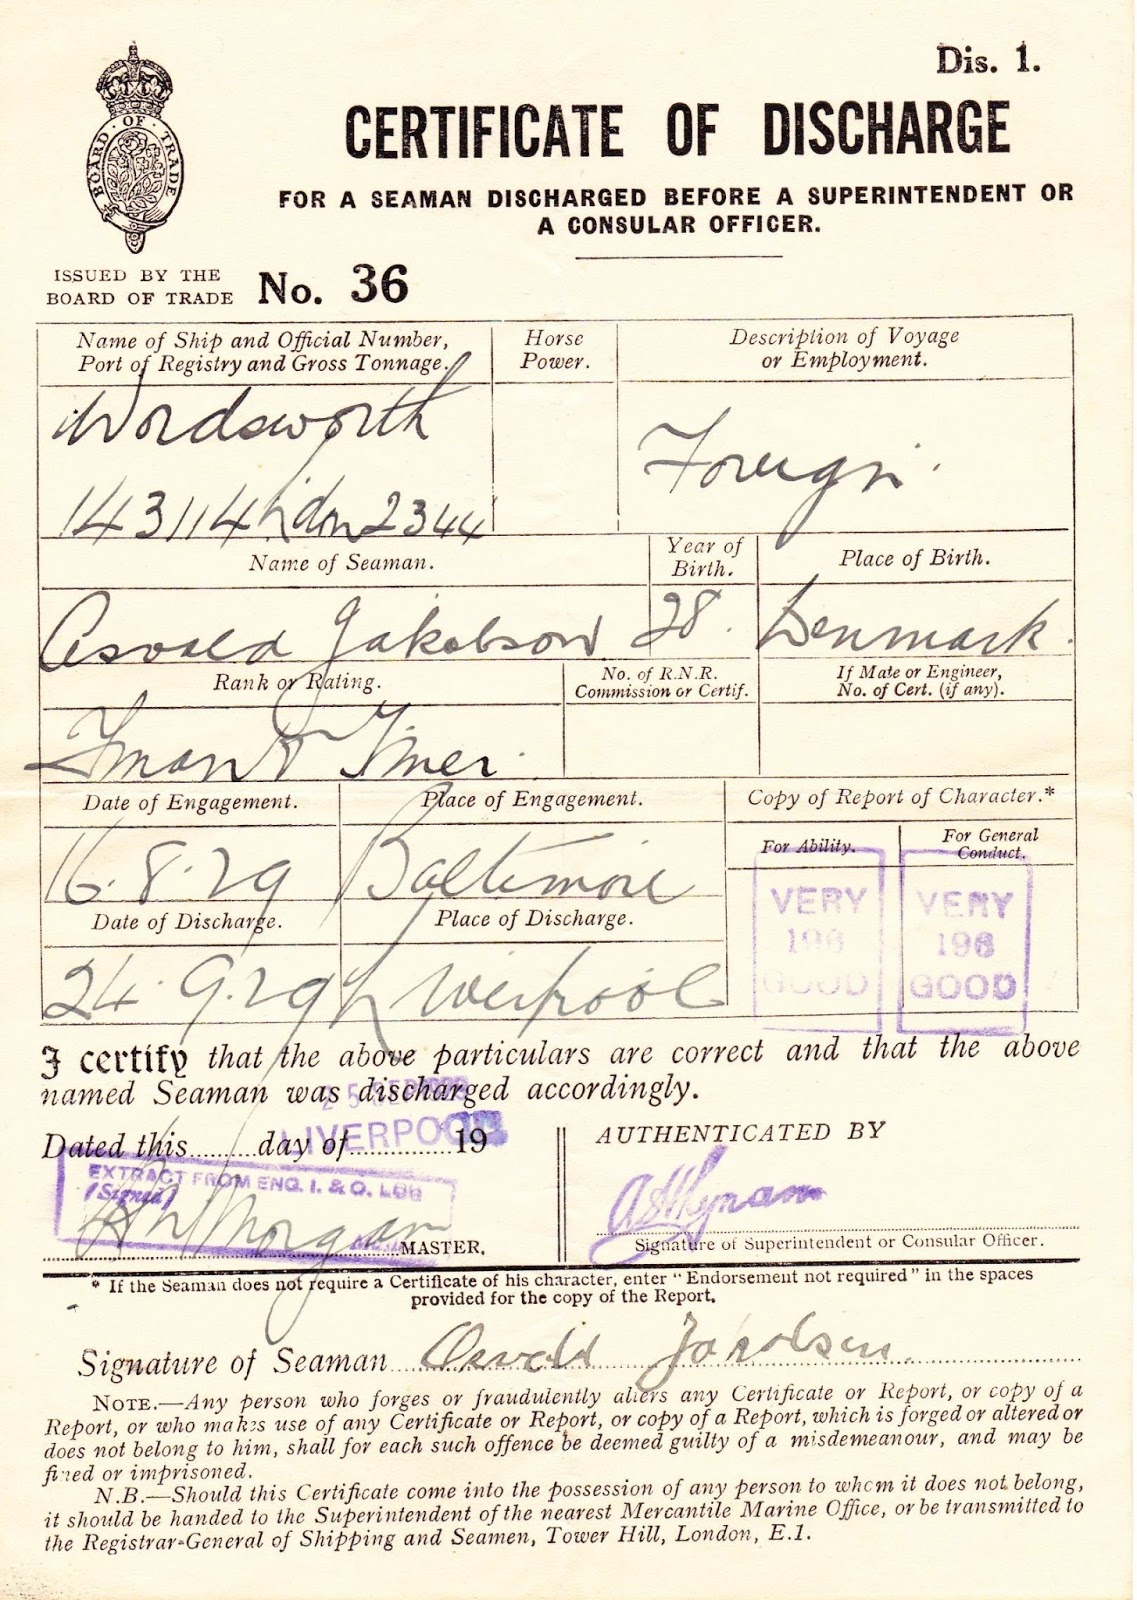 Dis. 1.
BOARD · OF · TRADE
CERTIFICATE OF DISCHARGE
FOR A SEAMAN DISCHARGED BEFORE A SUPERINTENDENT OR
A CONSULAR OFFICER.
ISSUED BY THE
BOARD OF TRADE No. 36
Name of Ship and Official Number,
Port of Registry and Gross Tonnage.
Horse
Power.
Description of Voyage
or Employment.
Wordsworth
143114 Ldn 2344
Foreign.
Name of Seaman.
Year of
Birth.
Place of Birth.
Osvald Jakobson
28.
Denmark.
Rank or Rating.
No. of R.N.R.
Commission or Certif.
If Mate or Engineer,
No. of Cert. (if any).
Fman & Tmer.
Date of Engagement.
Place of Engagement.
Copy of Report of Character.*
For Ability.
For General
Conduct.
16.8.29
Baltimore
VERY
196
GOOD
VERY
196
GOOD
Date of Discharge.
Place of Discharge.
24.9.29
Liverpool
I certify that the above particulars are correct and that the above
named Seaman was discharged accordingly.
25 SEP
LIVERPOOL
Dated this..........day of...............19
AUTHENTICATED BY
EXTRACT FROM ENG. 1. & O. LOG
(Signed)
Morgan
MASTER.
Signature of Superintendent or Consular Officer.
* If the Seaman does not require a Certificate of his character, enter "Endorsement not required" in the spaces
provided for the copy of the Report.
Signature of Seaman Osvald Jakobsen
NOTE.—Any person who forges or fraudulently alters any Certificate or Report, or copy of a
Report, or who makes use of any Certificate or Report, or copy of a Report, which is forged or altered or
does not belong to him, shall for each such offence be deemed guilty of a misdemeanour, and may be
fined or imprisoned.
N.B.—Should this Certificate come into the possession of any person to whom it does not belong,
it should be handed to the Superintendent of the nearest Mercantile Marine Office, or be transmitted to
the Registrar-General of Shipping and Seamen, Tower Hill, London, E.1.